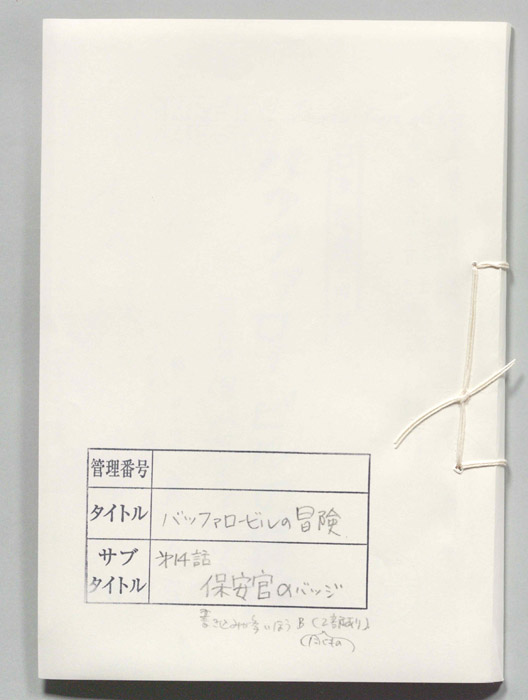 管理番号
タイトル バッファロービルの冒険
サブタイトル 第14話
保安官のバッジ
書き込みが多いほう B (2部あり)